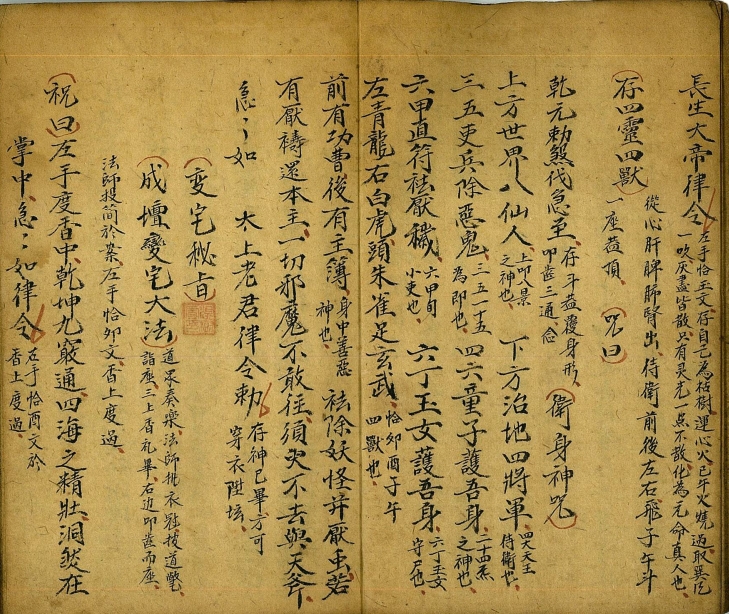 長生大帝律令 左手恰玉文存自己為枯樹運心火巳午火燒
一吹灰盡皆散只有灵光一点不散化為元命真人也
存四靈四獸 一座蓋頂 從心肝脾肺腎出侍衛前後左右飛子午斗
咒曰
乾元勅煞伐急至 存斗蓋覆身形 叩齒三通念 衛身神咒
上方世界八仙人 上叩八景之神也 下方治地四將軍 四大天王侍衛也
三五吏兵除惡鬼 三五一十五為即也 四六童子護吾身 二十四炁之神也
六甲直符祛厭穢 六甲旬小吏也 六丁玉女護吾身 六丁玉女守尸也
左青龍右白虎頭朱雀足玄武 恰卯酉子午四獸也
前有功曹後有主簿 身中善惡神也 祛除妖怪并厭虫若
有厭禱還本主一切邪魔不敢往須臾不去與天斧
急々如 太上老君律令勅 存神已畢方可穿衣陞坛
変宅秘旨
成壇變宅大法 道眾奏樂法師批衣冠拔道氅
詣座三上香礼畢右边叩齒而座
法師投简於案左手恰卯文香上度過
祝曰左手度香中乾坤九竅通四海之精壯洞然在
掌中急々如律令 左手恰酉文於香上度過